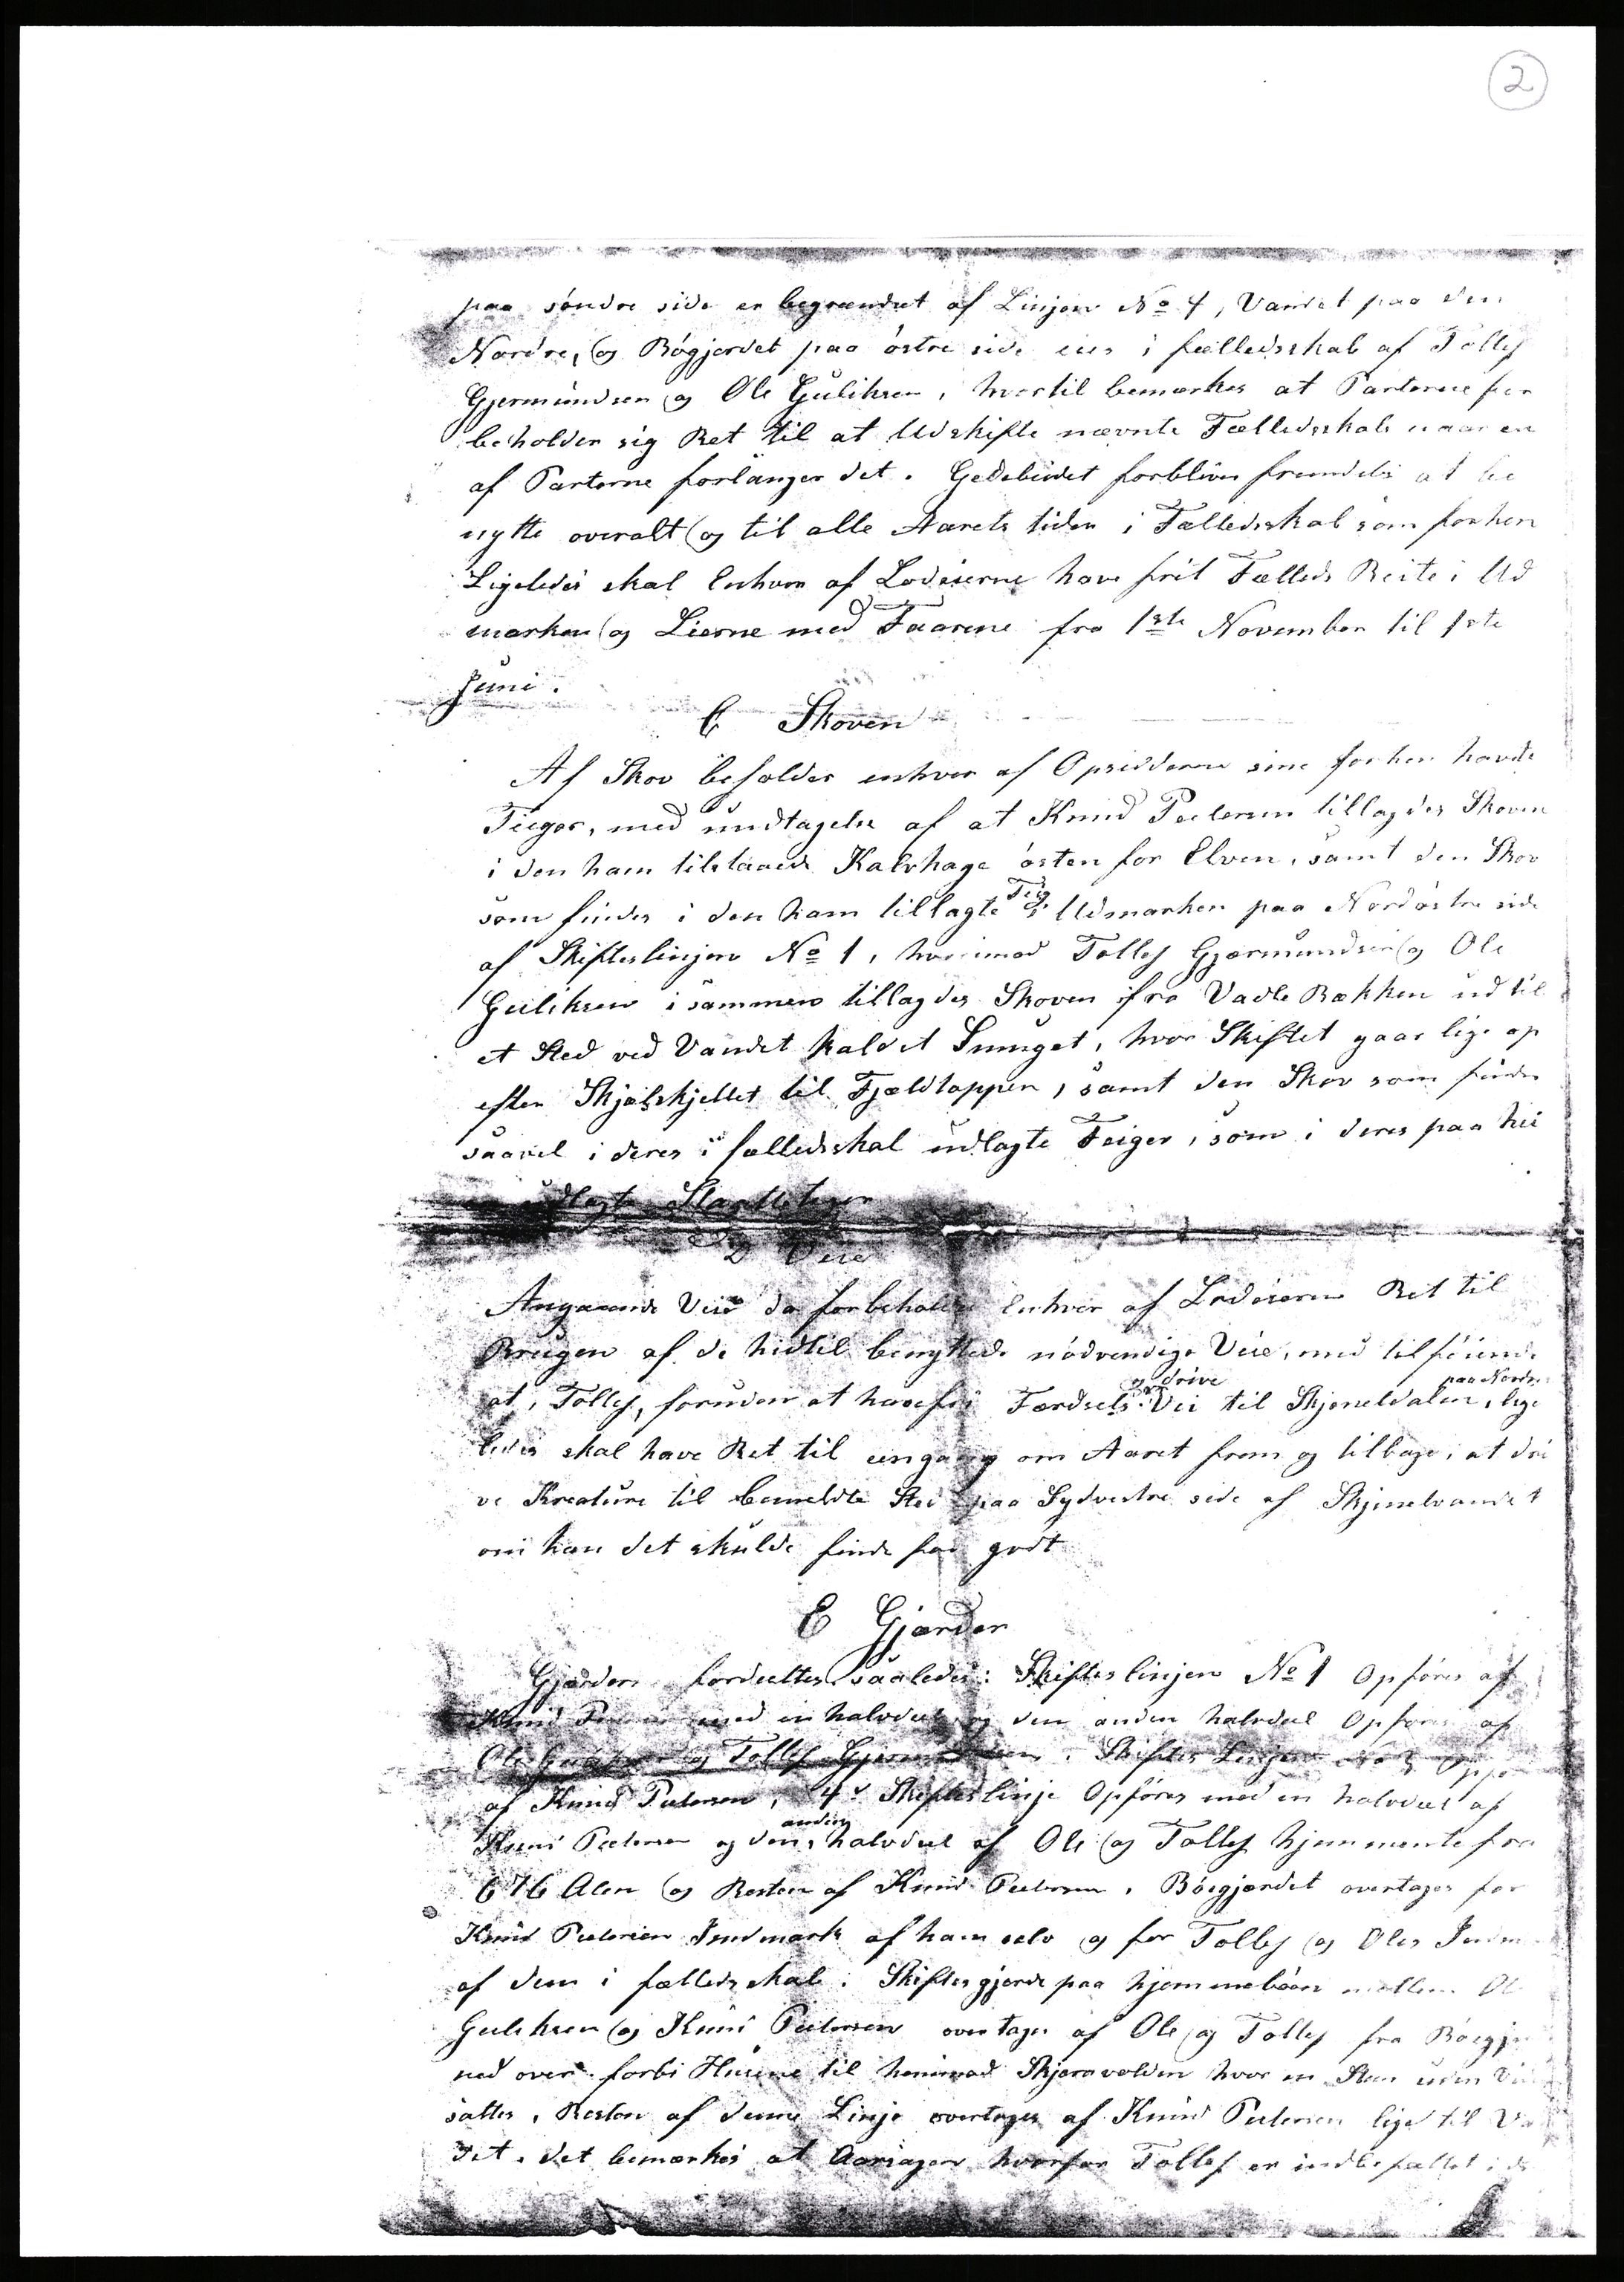 2
paa söndre side er begrændset af Linjen No 4, Vandet paa den
Nordre, og Bögjerdet paa östre side eies i fælledsskab af Tollef
Gjermundsen og Ole Guliksen, hvortil bemærkes at Parterne for
beholder sig Ret til at Udskifte nævnte Fælledsskab naar en
af Parterne forlanger det. Gedebeidet forbliver fremdeles at be
nytte overalt og til alle Aarets tider i Fælledsskab som forhen
Ligeledes skal Enhver af Lodeierne have frit Fælleds Beite i Ud
marken og Lierne med Faarene fra 1ste November til 1ste
Juni.
C Skoven
Af Skov beholder enhver af Opsidderne sine forhen havde
Teiger, med undtagelse af at Knud Pedersen tillagdes Skoven
i den ham tilstaaede Kalvhage östen for Elven, samt den Skov
som findes i den ham tillagte Teig i Udmarken paa Nordöstre side
af Skifteslinjen No 1, hvorimod Tollef Gjermundsen og Ole
Guliksen isammen tillagdes Skoven fra Vadle Bækken ud til
et Sted ved Vandet kaldet Smuget, hvor Skiftet gaar lige op
efter Skjelskjellet til Fjeldtoppen, samt den Skov som findes
saavel i deres i fælledsskab udlagte Teiger, som i deres paa hei
udlagte Slaatteteiger
D Veie
Angaaende Veie da forbeholdes Enhver af Lodeierne Ret til
Brugen af de hidtil benyttede nödvendige Veie, med tilföiende
at, Tollef, foruden at have fri Færdsels og drive Vei til Skjeneldalen paa Nordre, lige
ledes skal have Ret til engang om Aaret frem og tilbage, at dri
ve Kreature til bemeldte Sted paa Sydvestre side af Skjenelvandet
om han det skulde finde for godt
E Gjærder
Gjærder fordeeltes saaledes: Skifteslinjen No 1 Opföres af
Knud Pedersen med en halvdeel og den anden halvdeel Opföres af
Ole Guliksen og Tollef Gjermundsen. Skiftes Linjen No 2 Oppö
af Knud Pedersen, 4de Skifteslinje Opföres med en halvdeel af
Knud Pedersen og den anden halvdeel af Ole og Tollef hjemmente for
676 Alen og Resten af Knud Pedersen. Böegjærdet overtages for
Knud Pedersen Indmark af ham selv og for Tollef og Oles Indm
af dem i fælledsskab. Skiftesgjerde paa hjemmeböen mellem Ol
Guliksen og Knud Pedersen overtages af Ole og Tollef fra Böegje
ned over forbi Husene til henimod Skjeravolden hvor en Steen uden Vi
sattes, Resten af denne Linje overtages af Knud Pedersen lige til Va
det. det bemærkes at Aarsagen hvorfor Tollef er indbefattet i de